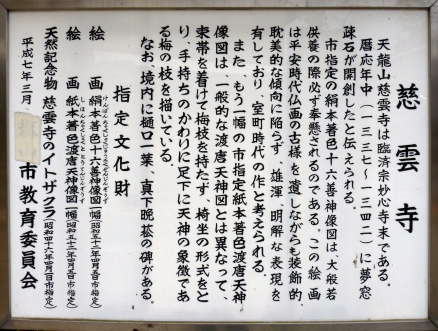 慈雲寺
天龍山慈雲寺は臨済宗妙心寺末である。
暦応年中（一三三七〜一三四二）に夢窓
疎石が開創したと伝えられる。
市指定の絹本著色十六善神像図は、大般若
供養の際必ず奉懸されるのである。この絵画
は平安時代仏画の古様を遺しながらも装飾的、
耽美的な傾向に陥らず、雄渾、明解な表現を
有しており、室町時代の作と考えられる。
また、もう一幅の市指定紙本著色渡唐天神
像図は、一般的な渡唐天神図とは異なって、
束帯を着けて梅枝を持たず、椅坐の形式をと
り、手持ちのかわりに足下に天神の象徴であ
る梅の枝を描いている。
なお、境内に樋口一葉、真下晩菘の碑がある。
指定文化財
絵画 絹本著色十六善神像図一幅（昭和五十二年四月五日市指定）
絵画 紙本著色渡唐天神像図一幅（昭和五十二年四月五日市指定）
天然記念物 慈雲寺のイトザクラ（昭和四十六年四月一日市指定）
平成七年三月
市教育委員会